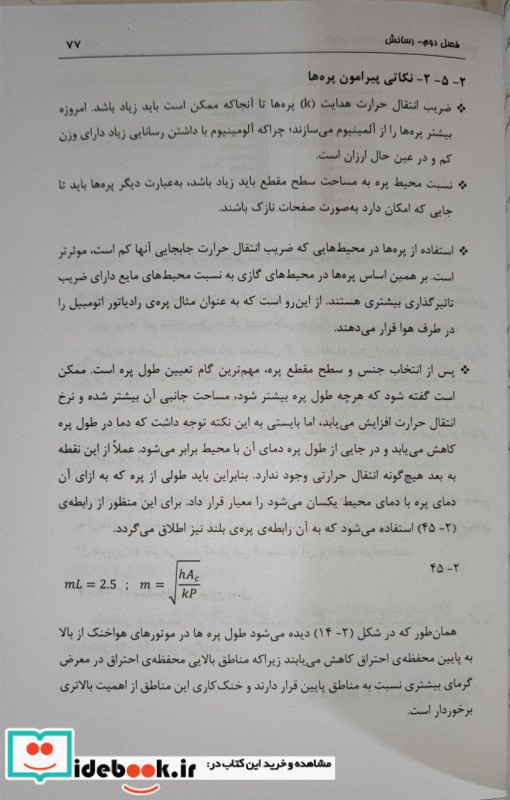 فصل دوم- رسانش ۷۷
۲- ۵- ۲- نکاتی پیرامون پره‌ها
❖ ضریب انتقال حرارت هدایت (k) پره‌ها تا آنجاکه ممکن است باید زیاد باشد. امروزه
بیشتر پره‌ها را از آلمینیوم می‌سازند؛ چراکه آلومینیوم با داشتن رسانایی زیاد دارای وزن
کم و در عین حال ارزان است.
❖ نسبت محیط پره به مساحت سطح مقطع باید زیاد باشد، به‌عبارت دیگر پره‌ها باید تا
جایی که امکان دارد به‌صورت صفحات نازک باشند.
❖ استفاده از پره‌ها در محیط‌هایی که ضریب انتقال حرارت جابجایی آنها کم است، موثرتر
است. بر همین اساس پره‌ها در محیط‌های گازی به نسبت محیط‌های مایع دارای ضریب
تاثیرگذاری بیشتری هستند. از این‌رو است که به عنوان مثال پره‌ی رادیاتور اتومبیل را
در طرف هوا قرار می‌دهند.
❖ پس از انتخاب جنس و سطح مقطع پره، مهم‌ترین گام تعیین طول پره است. ممکن
است گفته شود که هرچه طول پره بیشتر شود، مساحت جانبی آن بیشتر شده و نرخ
انتقال حرارت افزایش می‌یابد، اما بایستی به این نکته توجه داشت که دما در طول پره
کاهش می‌یابد و در جایی از طول پره دمای آن با محیط برابر می‌شود. عملاً از این نقطه
به بعد هیچ‌گونه انتقال حرارتی وجود ندارد. بنابراین باید طولی از پره که به ازای آن
دمای پره با دمای محیط یکسان می‌شود را معیار قرار داد. برای این منظور از رابطه‌ی
(۲- ۴۵) استفاده می‌شود که به آن رابطه‌ی پره‌ی بلند نیز اطلاق می‌گردد.
۲- ۴۵
mL = 2.5 ; m = √(hA_c/kP)
همان‌طور که در شکل (۲- ۱۴) دیده می‌شود طول پره ها در موتورهای هواخنک از بالا
به پایین محفظه‌ی احتراق کاهش می‌یابند زیراکه مناطق بالایی محفظه‌ی احتراق در معرض
گرمای بیشتری نسبت به مناطق پایین قرار دارند و خنک‌کاری این مناطق از اهمیت بالاتری
برخوردار است.
مشاهده و خرید این کتاب در:
idebook.ir